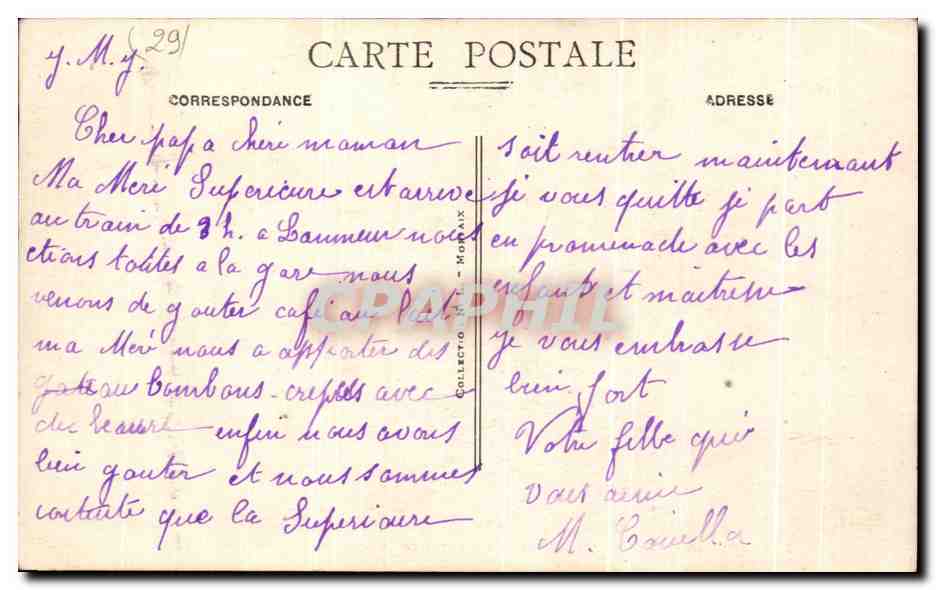 J. M. J.
(29)
CARTE POSTALE
CORRESPONDANCE
ADRESSE
Cher papa chéri maman
Ma Meré Superieure est arrive
au train de 3 h. a Lanmeur nous
etions toutes a la gare nous
venons de gouter café au lait
ma Meré nous a apporter des
gateau bombons - crepes avec
du beaurre enfin nous avons
bien gouter et nous sommes
contente que la Superieure
COLLECTION N. L. - MORLAIX
soit rentrer maintenant
je vous quitte je part
en promenade avec les
enfants et maitresse
Je vous embrasse
bien fort
Votre fille qui
vous aime
M.
CPAPHIL